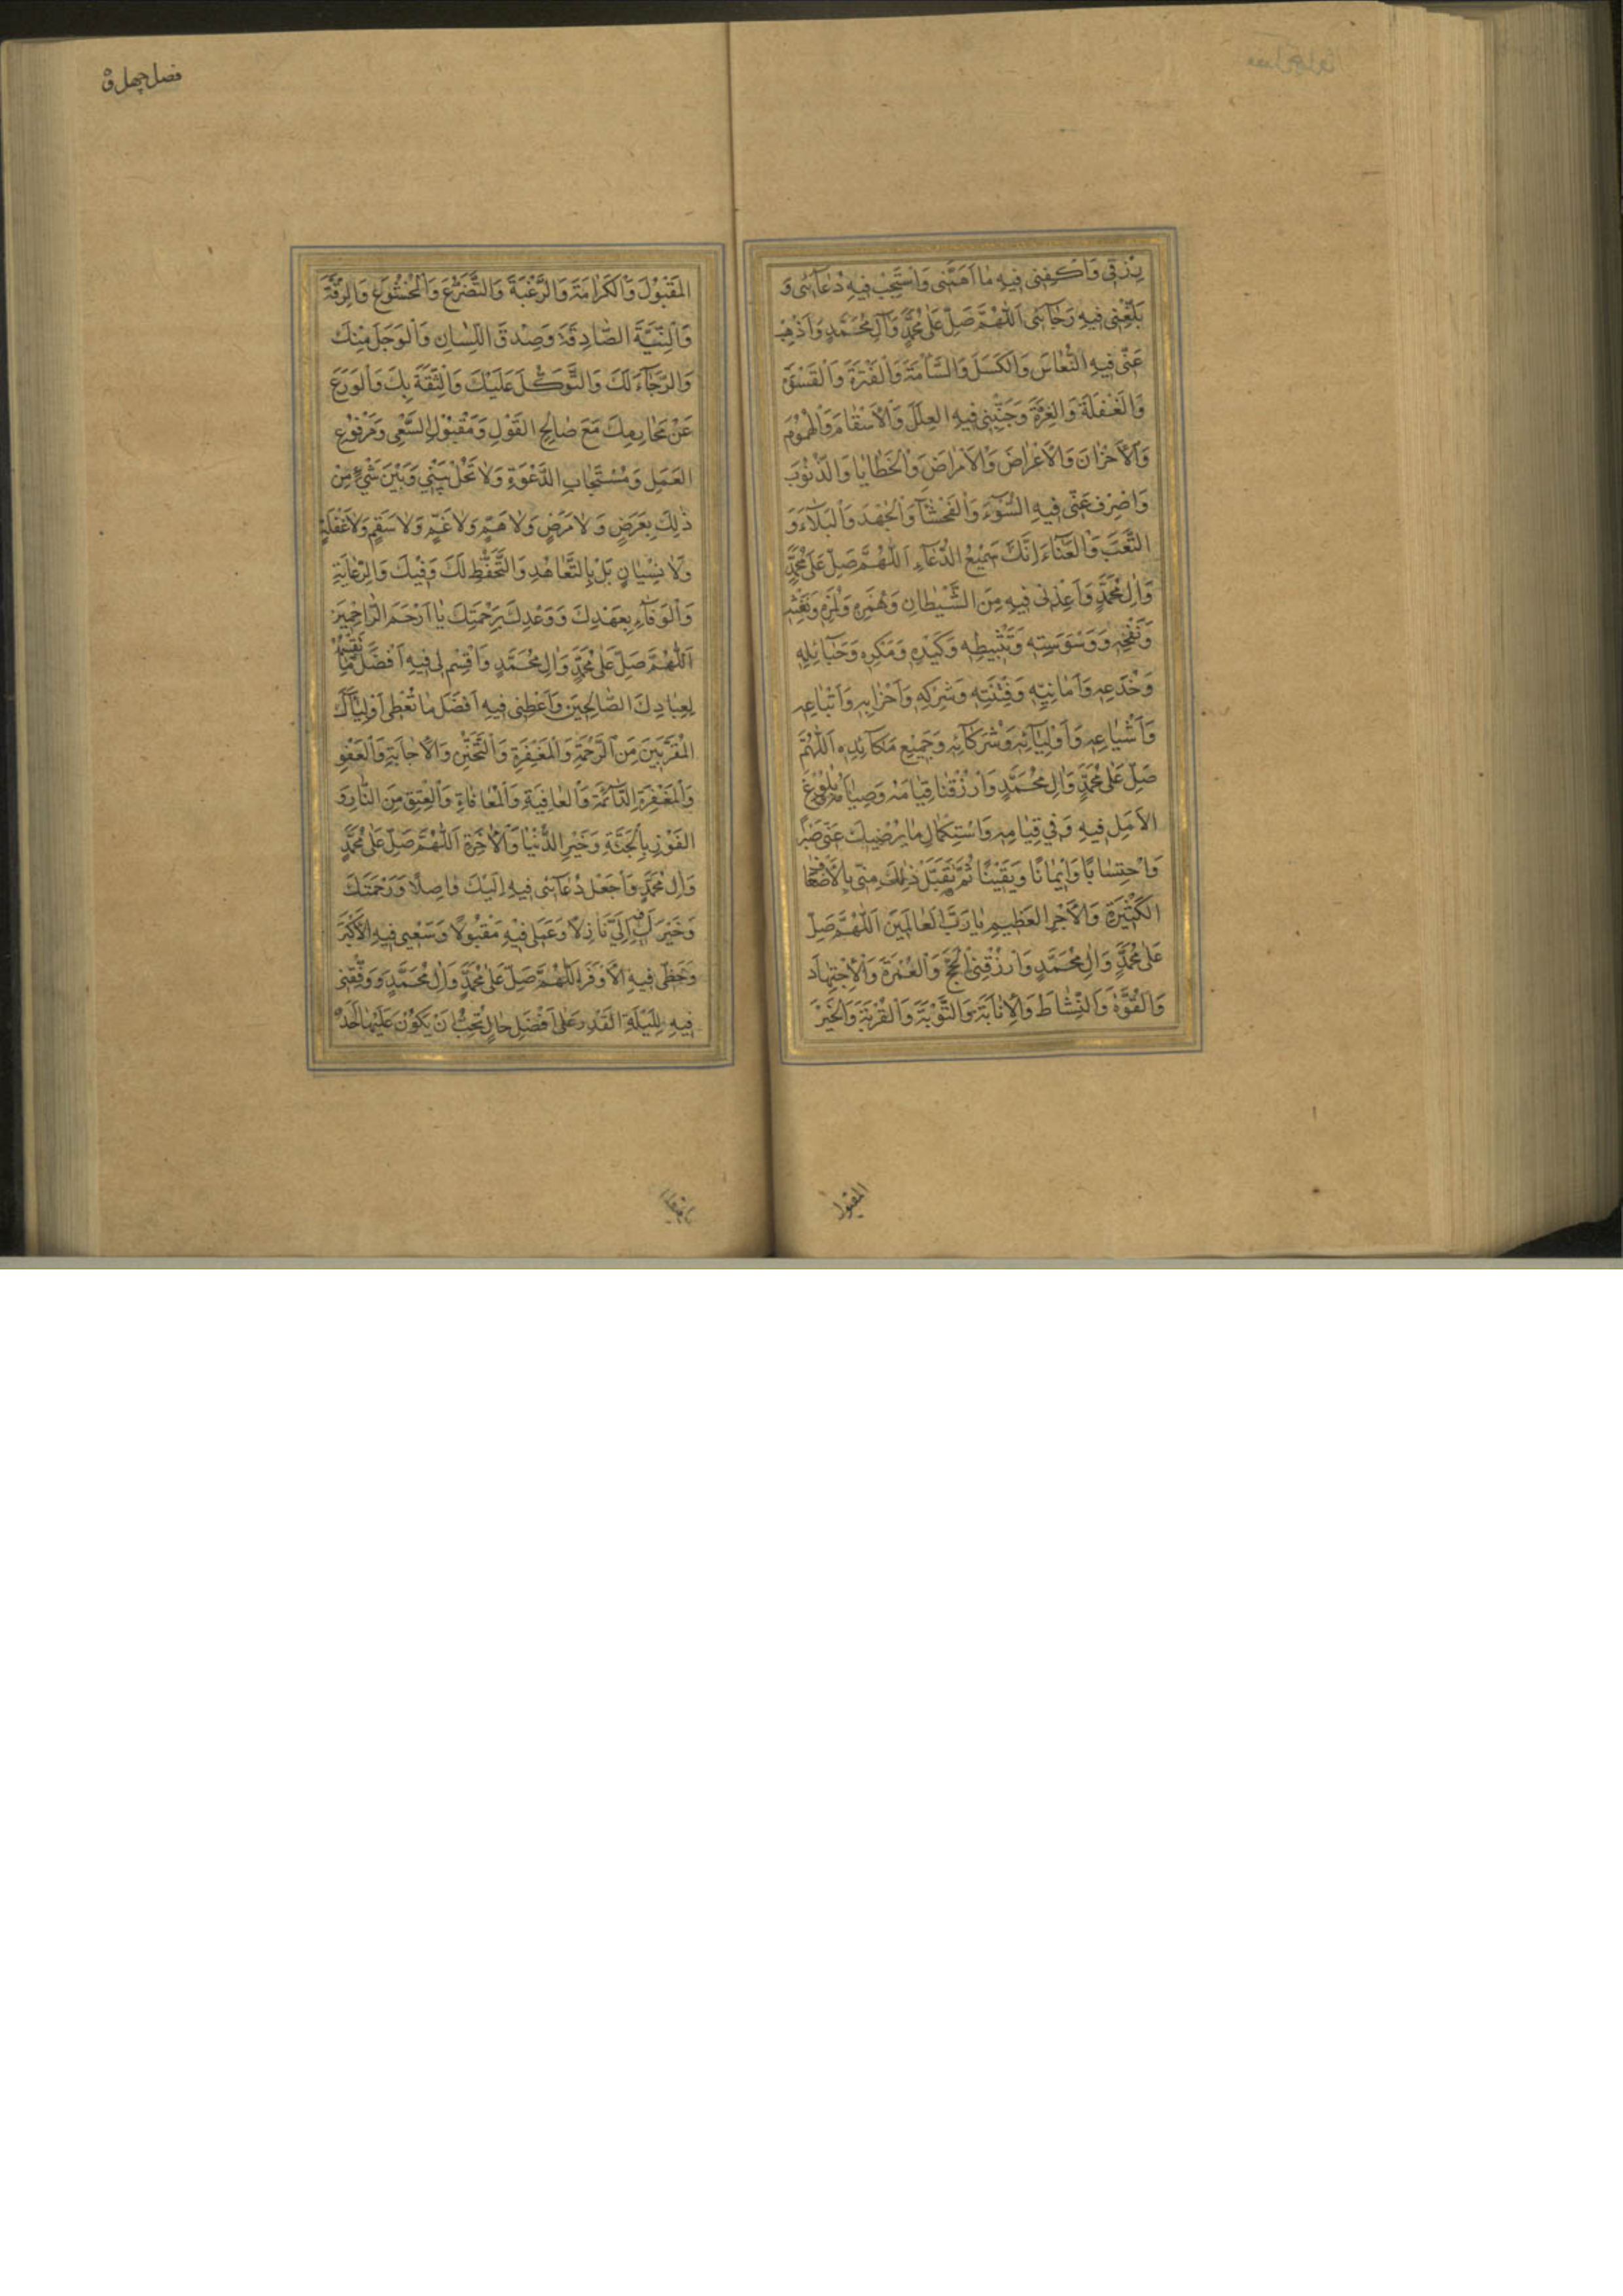 رِزْقِي وَاكْفِنِي فِيهِ مَا اَهَمَّنِي وَاسْتَجِبْ فِيهِ دُعَآئِي وَ
بَلِّغْنِي فِيهِ رَجَآئِي اَللّٰهُمَّ صَلِّ عَلٰى مُحَمَّدٍ وَآلِ مُحَمَّدٍ وَاَذْهِبْ
عَنِّي فِيهِ النُّعَاسَ وَالْكَسَلَ وَالسَّأْمَةَ وَالْفَتْرَةَ وَالْقَسْوَةَ
وَالْغَفْلَةَ وَالْغِرَّةَ وَجَنِّبْنِي فِيهِ الْعِلَلَ وَالْاَسْقَامَ وَالْهُمُومَ
وَالْاَحْزَانَ وَالْاَعْرَاضَ وَالْاَمْرَاضَ وَالْخَطَايَا وَالذُّنُوبَ
وَاصْرِفْ عَنِّي فِيهِ السُّوٓءَ وَالْفَحْشَآءَ وَالْجَهْدَ وَالْبَلَآءَ وَ
التَّعَبَ وَالْعَنَآءَ اِنَّكَ سَمِيعُ الدُّعَآءِ اَللّٰهُمَّ صَلِّ عَلٰى مُحَمَّدٍ
وَاٰلِ مُحَمَّدٍ وَاَعِذْنِي فِيهِ مِنَ الشَّيْطَانِ وَهَمْزِهِ وَلَمْزِهِ وَنَفْثِهِ
وَنَفْخِهِ وَوَسْوَسَتِهِ وَتَثْبِيطِهِ وَكَيْدِهِ وَمَكْرِهِ وَحَبَآئِلِهِ
وَخُدَعِهِ وَاَمَانِيِّهِ وَفِتْنَتِهِ وَشِرْكِهِ وَاَحْزَابِهِ وَاَتْبَاعِهِ
وَاَشْيَاعِهِ وَاَوْلِيَآئِهِ وَشُرَكَآئِهِ وَجَمِيعِ مَكَآئِدِهِ اَللّٰهُمَّ
صَلِّ عَلٰى مُحَمَّدٍ وَاٰلِ مُحَمَّدٍ وَارْزُقْنَا قِيَامَهُ وَصِيَامَهُ وَبُلُوغَ
الْاَمَلِ فِيهِ وَفِي قِيَامِهِ وَاسْتِكْمَالِ مَا يُرْضِيكَ عَنِّي صَبْرًا
وَاحْتِسَابًا وَاِيمَانًا وَيَقِينًا ثُمَّ تَقَبَّلْ ذٰلِكَ مِنِّي بِالْاَضْعَافِ
الْكَثِيرَةِ وَالْاَجْرِ الْعَظِيمِ يَا رَبَّ الْعَالَمِينَ اَللّٰهُمَّ صَلِّ
عَلٰى مُحَمَّدٍ وَاٰلِ مُحَمَّدٍ وَارْزُقْنِي الْحَجَّ وَالْعُمْرَةَ وَالْاِجْتِهَادَ
وَالْقُوَّةَ وَالنَّشَاطَ وَالْاِنَابَةَ وَالتَّوْبَةَ وَالْقُرْبَةَ وَالْخَيْرَ
المقبول
فصل چهل و
الْمَقْبُولَ وَالْكَرَامَةَ وَالرَّغْبَةَ وَالتَّضَرُّعَ وَالْخُشُوعَ وَالرِّقَّةَ
وَالنِّيَّةَ الصَّادِقَةَ وَصِدْقَ اللِّسَانِ وَالْوَجَلَ مِنْكَ
وَالرَّجَآءَ لَكَ وَالتَّوَكُّلَ عَلَيْكَ وَالثِّقَةَ بِكَ وَالْوَرَعَ
عَنْ مَحَارِمِكَ مَعَ صَالِحِ الْقَوْلِ وَمَقْبُولِ السَّعْيِ وَمَرْفُوعِ
الْعَمَلِ وَمُسْتَجَابِ الدَّعْوَةِ وَلَا تَحُلْ بَيْنِي وَبَيْنَ شَيْءٍ مِنْ
ذٰلِكَ بِعَرَضٍ وَلَا مَرَضٍ وَلَا هَمٍّ وَلَا غَمٍّ وَلَا سَقَمٍ وَلَا غَفْلَةٍ
وَلَا نِسْيَانٍ بَلْ بِالتَّعَاهُدِ وَالتَّحَفُّظِ لَكَ وَفِيكَ وَالرِّعَايَةِ
وَالْوَفَآءِ بِعَهْدِكَ وَوَعْدِكَ بِرَحْمَتِكَ يَا اَرْحَمَ الرَّاحِمِينَ
اَللّٰهُمَّ صَلِّ عَلٰى مُحَمَّدٍ وَاٰلِ مُحَمَّدٍ وَاقْسِمْ لِي فِيهِ اَفْضَلَ مَا تَقْسِمُهُ
لِعِبَادِكَ الصَّالِحِينَ وَاَعْطِنِي فِيهِ اَفْضَلَ مَا تُعْطِي اَوْلِيَآءَكَ
الْمُقَرَّبِينَ مِنَ الرَّحْمَةِ وَالْمَغْفِرَةِ وَالتَّحَنُّنِ وَالْاِجَابَةِ وَالْعَفْوِ
وَالْمَغْفِرَةِ الدَّآئِمَةِ وَالْعَافِيَةِ وَالْمُعَافَاةِ وَالْعِتْقِ مِنَ النَّارِ وَ
الْفَوْزِ بِالْجَنَّةِ وَخَيْرِ الدُّنْيَا وَالْاٰخِرَةِ اَللّٰهُمَّ صَلِّ عَلٰى مُحَمَّدٍ
وَاٰلِ مُحَمَّدٍ وَاجْعَلْ دُعَآئِي فِيهِ اِلَيْكَ وَاصِلًا وَرَحْمَتَكَ
وَخَيْرَكَ فِيهِ اِلَيَّ نَازِلًا وَعَمَلِي فِيهِ مَقْبُولًا وَسَعْيِي فِيهِ الْاَكْبَرَ
وَحَظِّي فِيهِ الْاَوْفَرَ اَللّٰهُمَّ صَلِّ عَلٰى مُحَمَّدٍ وَاٰلِ مُحَمَّدٍ وَوَفِّقْنِي
فِيهِ لِلَيْلَةِ الْقَدْرِ عَلٰى اَفْضَلِ حَالٍ تُحِبُّ اَنْ يَكُونَ عَلَيْهَا اَحَدٌ